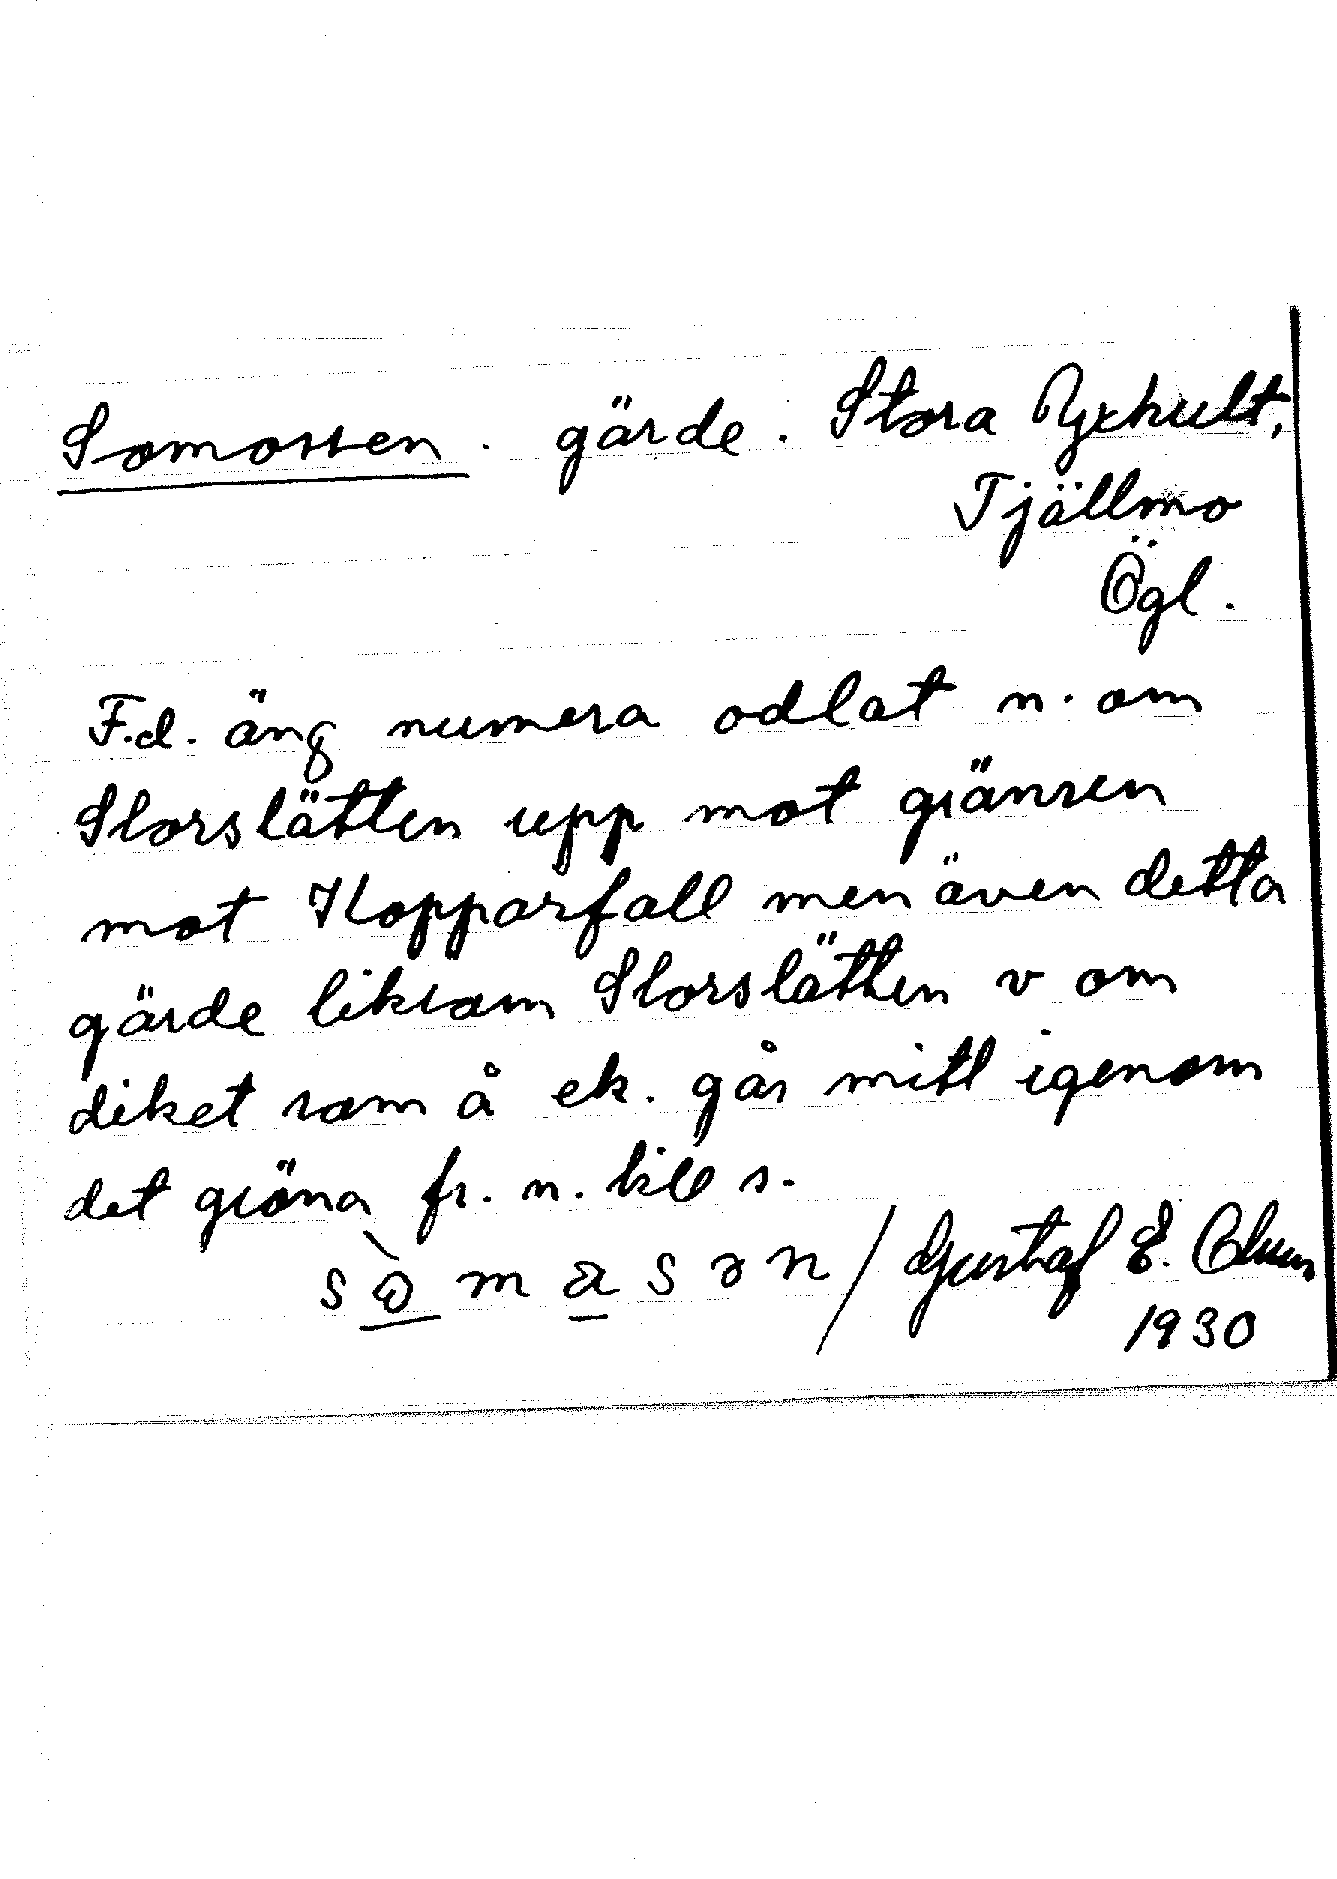 Somossen . gärde . Stora Yxhult,
Tjällmo
Ögl.
F.d. äng numera odlat n. om
Storslätten upp mot gränsen
mot Kopparfall men även detta
gärde liksom Storslätten v om
diket som å ek. går mitt igenom
det gröna fr. n. till s.
/ Gustaf E.
1930